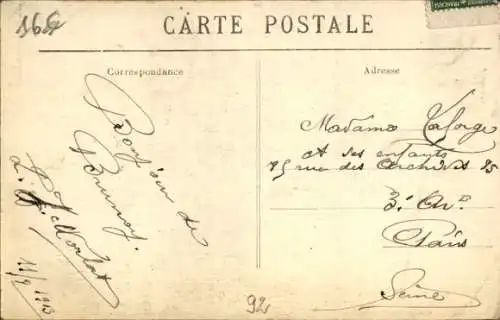 1654
CARTE POSTALE
Correspondance
Bonjour de
Brunoy.
11/9 1913
Adresse
Madame Laforge
et ses enfants
75 rue des Archives 75
3e Art
Paris
Seine
92